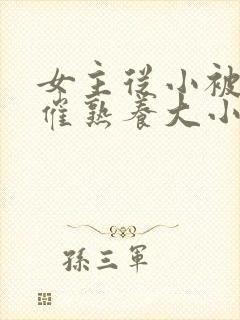 女主从小被
催熟养大小
孫三軍